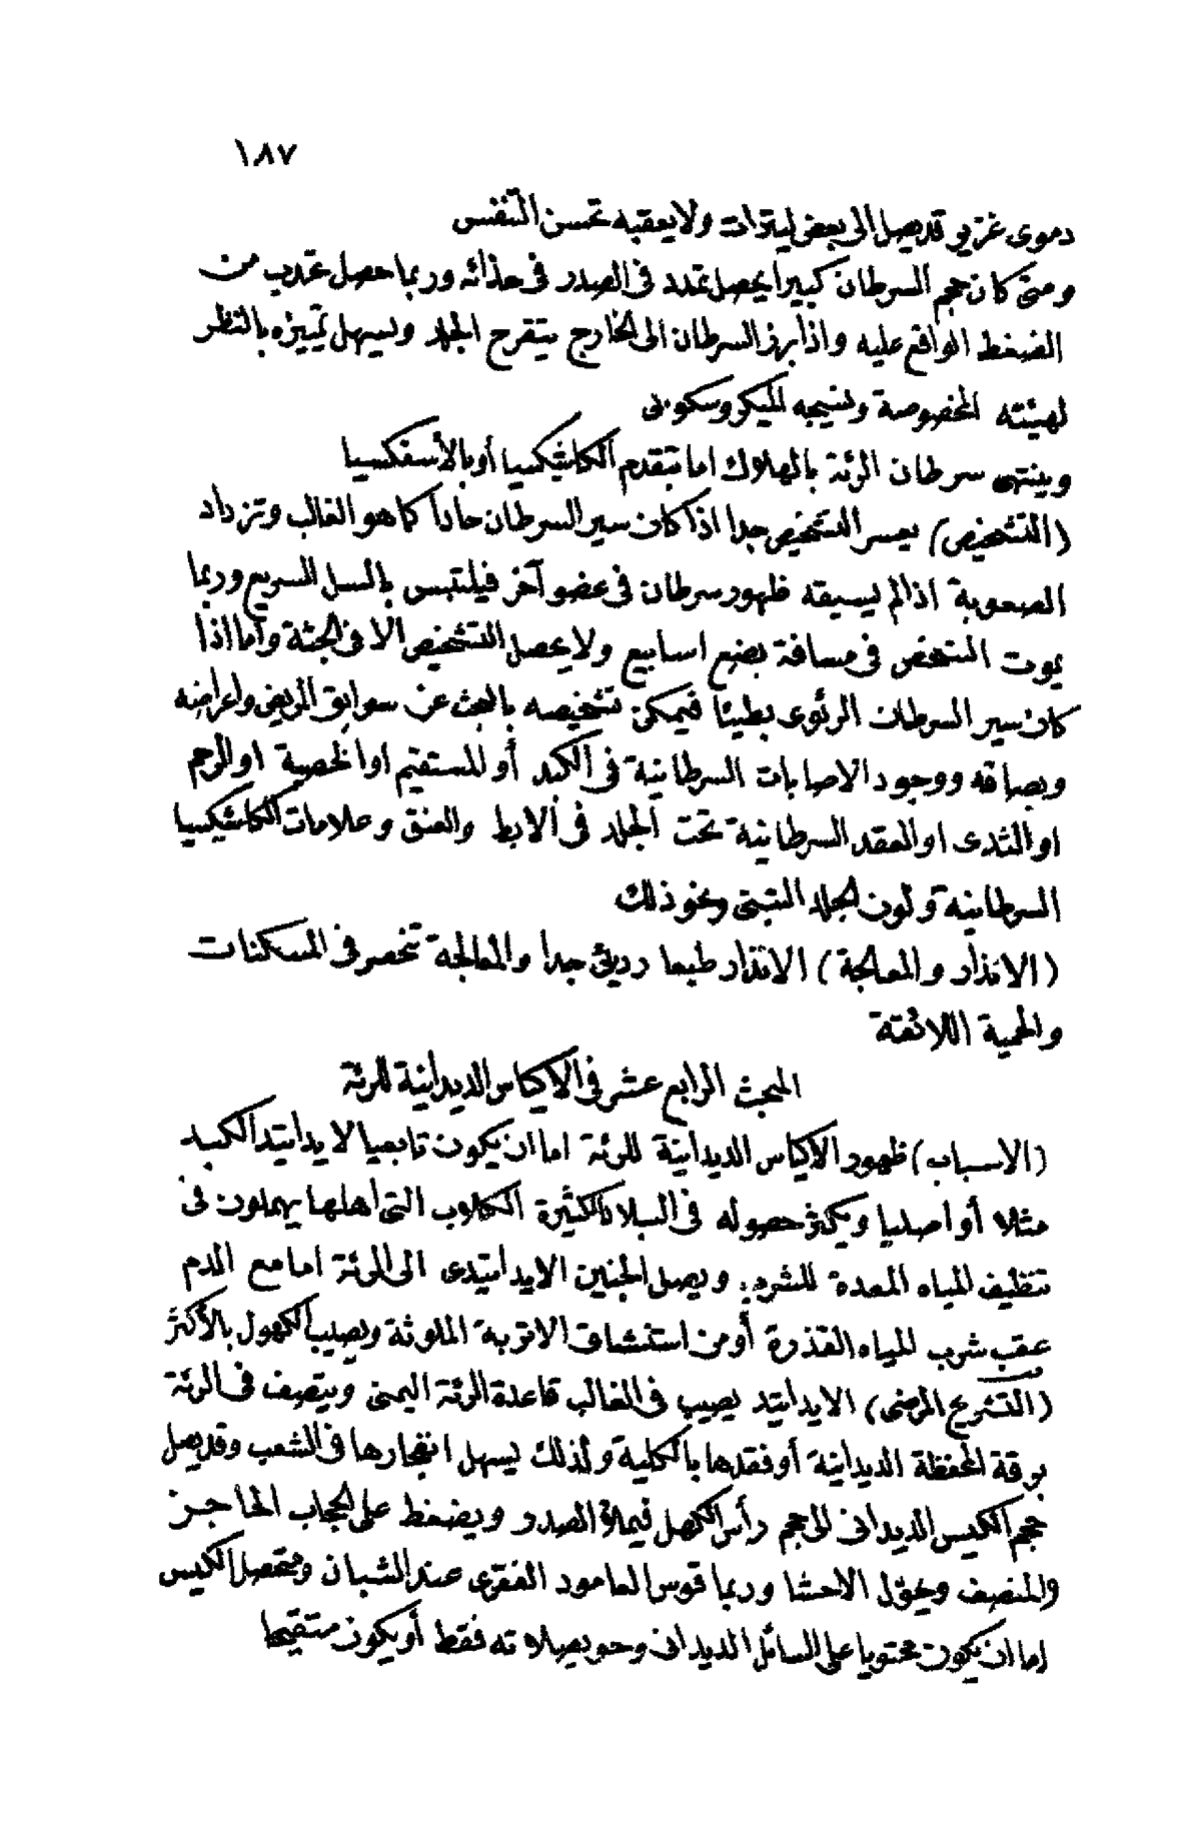 ١٨٧
دموى غزير قد يصل الى بعض ليترات ولا يعقبه تحسن التنفس
ومتى كان حجم السرطان كبيرا يحصل تمدد فى الصدر فى حذائه وربما حصل تحدب من
الضغط الواقع عليه واذا برز السرطان الى الخارج يتقرح الجلد ويسهل تمييزه بالنظر
لهيئته المخصوصة ونسيجه الميكروسكوبى
وينتهى سرطان الرئة بالهلاك اما بتقدم الكاشيكسيا أو بالأسفكسيا
(التشخيص) يعسر التشخيص جدا اذا كان سير السرطان حادا كما هو الغالب وتزداد
الصعوبة اذا لم يسبقه ظهور سرطان فى عضو آخر فيلتبس بالسل السريع وربما
يموت الشخص فى مسافة بضع اسابيع ولا يحصل التشخيص الا فى الجثة وأما اذا
كان سير السرطان الرئوى بطيئا فيمكن تشخيصه بالبحث عن سوابق المريض واعراضه
وبصاقه ووجود الاصابات السرطانية فى الكبد أو المستقيم او الخصية او الرحم
او الثدى او العقد السرطانية تحت الجلد فى الابط والعنق وعلامات الكاشيكسيا
السرطانية ولون الجلد التبنى ونحو ذلك
(الانذار والمعالجة) الانذار طبعا رديئ جدا والمعالجة تنحصر فى المسكنات
والحمية اللائقة
المبحث الرابع عشر فى الاكياس الديدانية للرئة
(الاسباب) ظهور الاكياس الديدانية للرئة اما ان يكون تابعيا لايداتيد الكبد
مثلا أو اصليا ويكثر حصوله فى البلاد الكثيرة الكلاب التى اهلها يهملون فى
تنظيف المياه المعدة للشرب ويصل الجنين الايداتيدى الى الرئة اما مع الدم
عقب شرب المياه القذرة أو من استنشاق الاتربة الملوثة ويصيب الكهول بالأكثر
(التشريح المرضى) الايداتيد يصيب فى الغالب قاعدة الرئة اليمنى ويتصف فى الرئة
برقة المحفظة الديدانية أو فقدها بالكلية ولذلك يسهل انفجارها فى الشعب وقد يصل
حجم الكيس الديدانى الى حجم رأس الكهل فيملأ الصدر ويضغط على الحجاب الحاجز
والمنصف ويحوّل الاحشا وربما قوس العامود الفقرى عند الشبان ومتحصل الكيس
اما ان يكون محتويا على السائل الديدانى وحويصلاته فقط أو يكون متقيحا